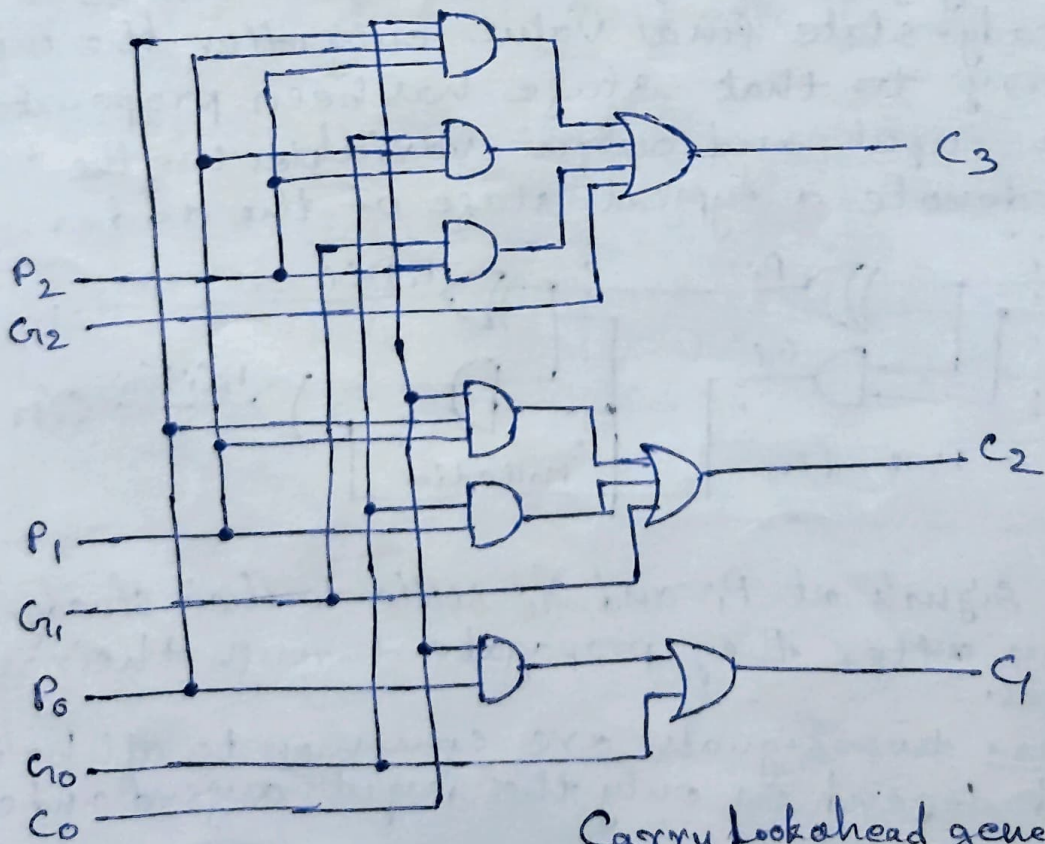 C3
P2
G2
C2
P1
G1
P0
C1
G0
C0
Carry Lookahead gene